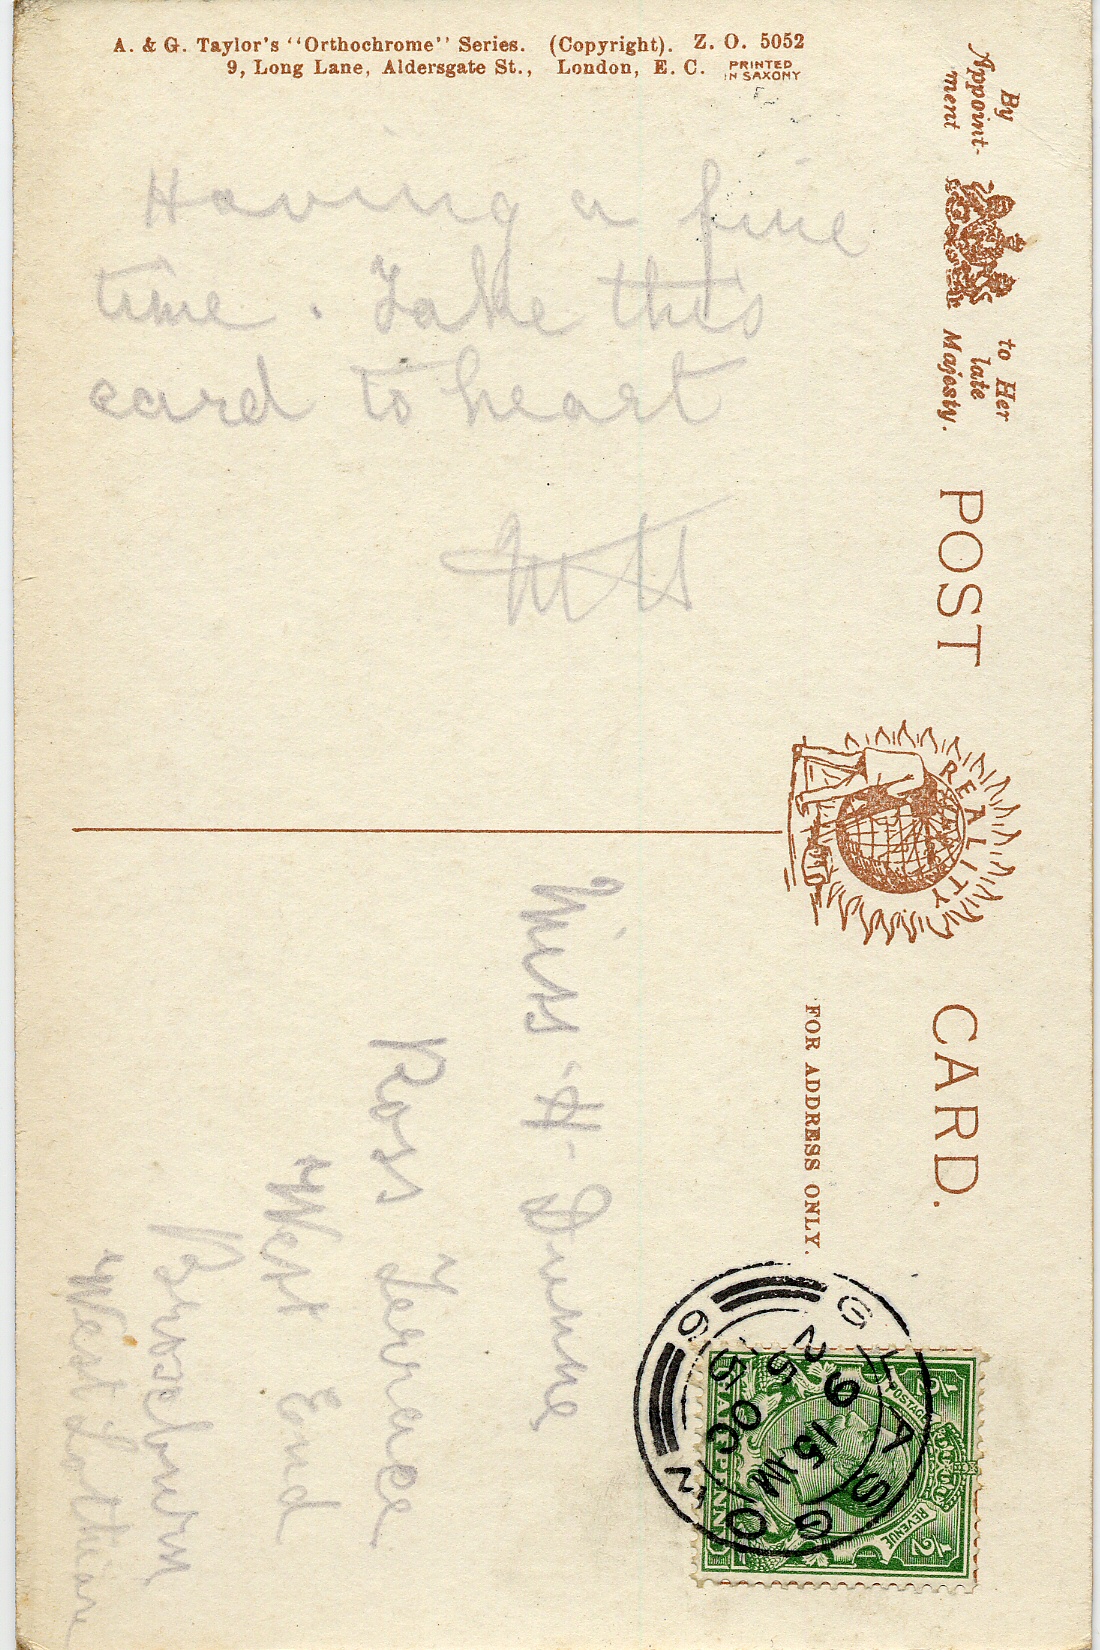 A. & G. Taylor's "Orthochrome" Series. (Copyright). Z. O. 5052
9, Long Lane, Aldersgate St., London, E. C. PRINTED
IN SAXONY
By
Appoint-
ment
to Her
late
Majesty.
POST CARD.
REALITY
FOR ADDRESS ONLY.
Having a fine
time. Take this
card to heart
Miss H. Dunne
Ross Terrace
West End
Broxburn
West Lothian
GLASGOW
9 15 AM
OC
6
POSTAGE
REVENUE
1/2
1/2